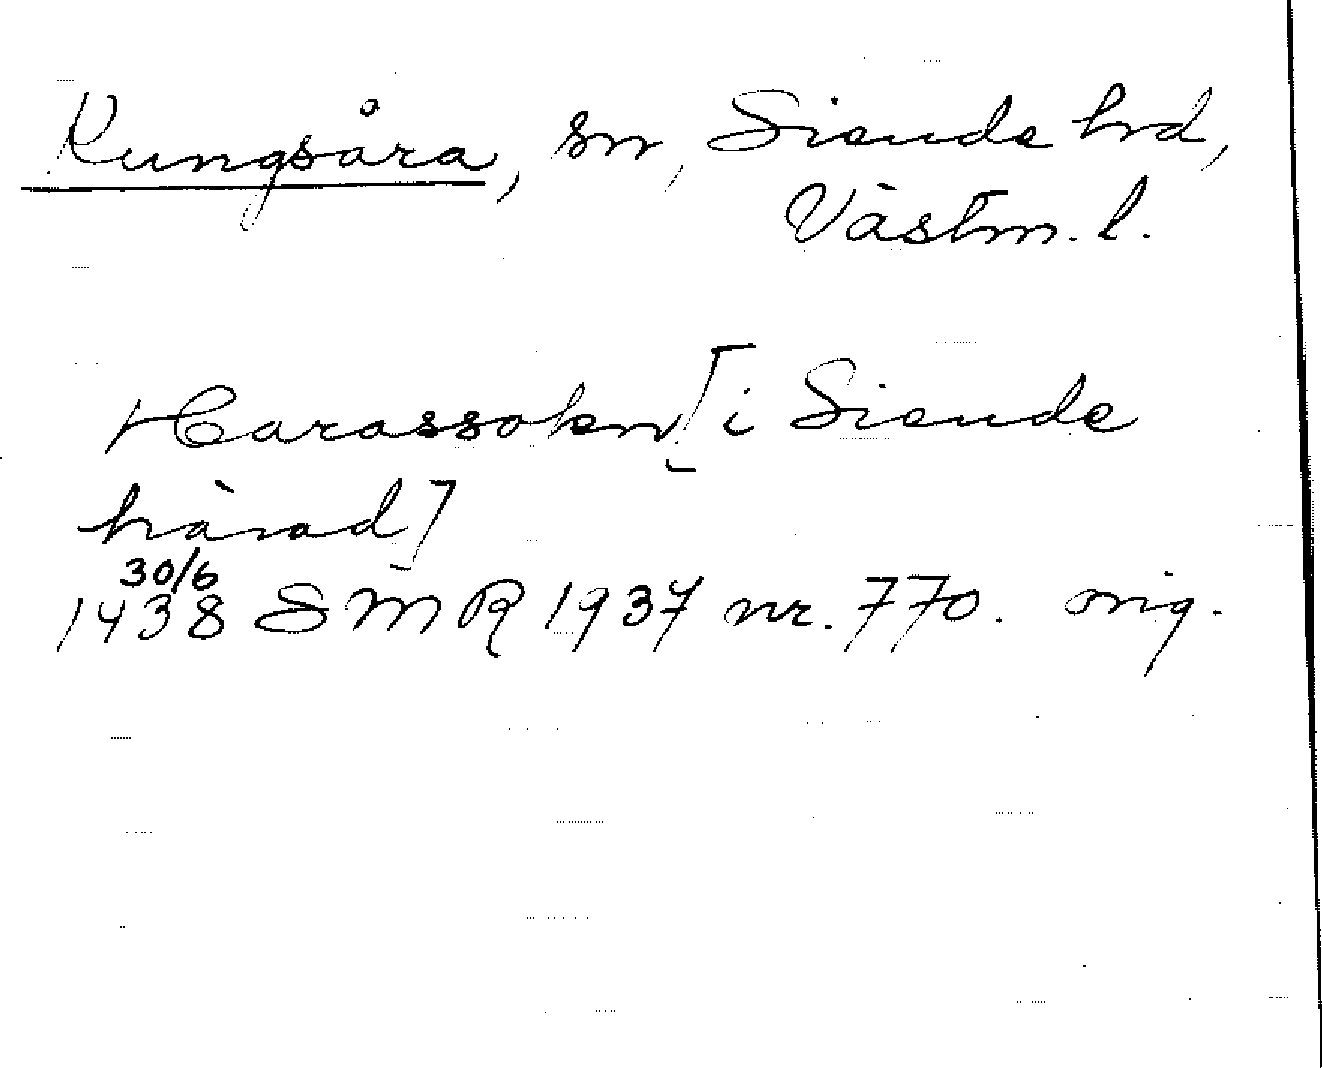 Kungsåra, sn, Siende hrd,
Västm. l.
Harassokn [i Siende
härad]
30/6
1438 SMR 1937 nr. 770. orig.